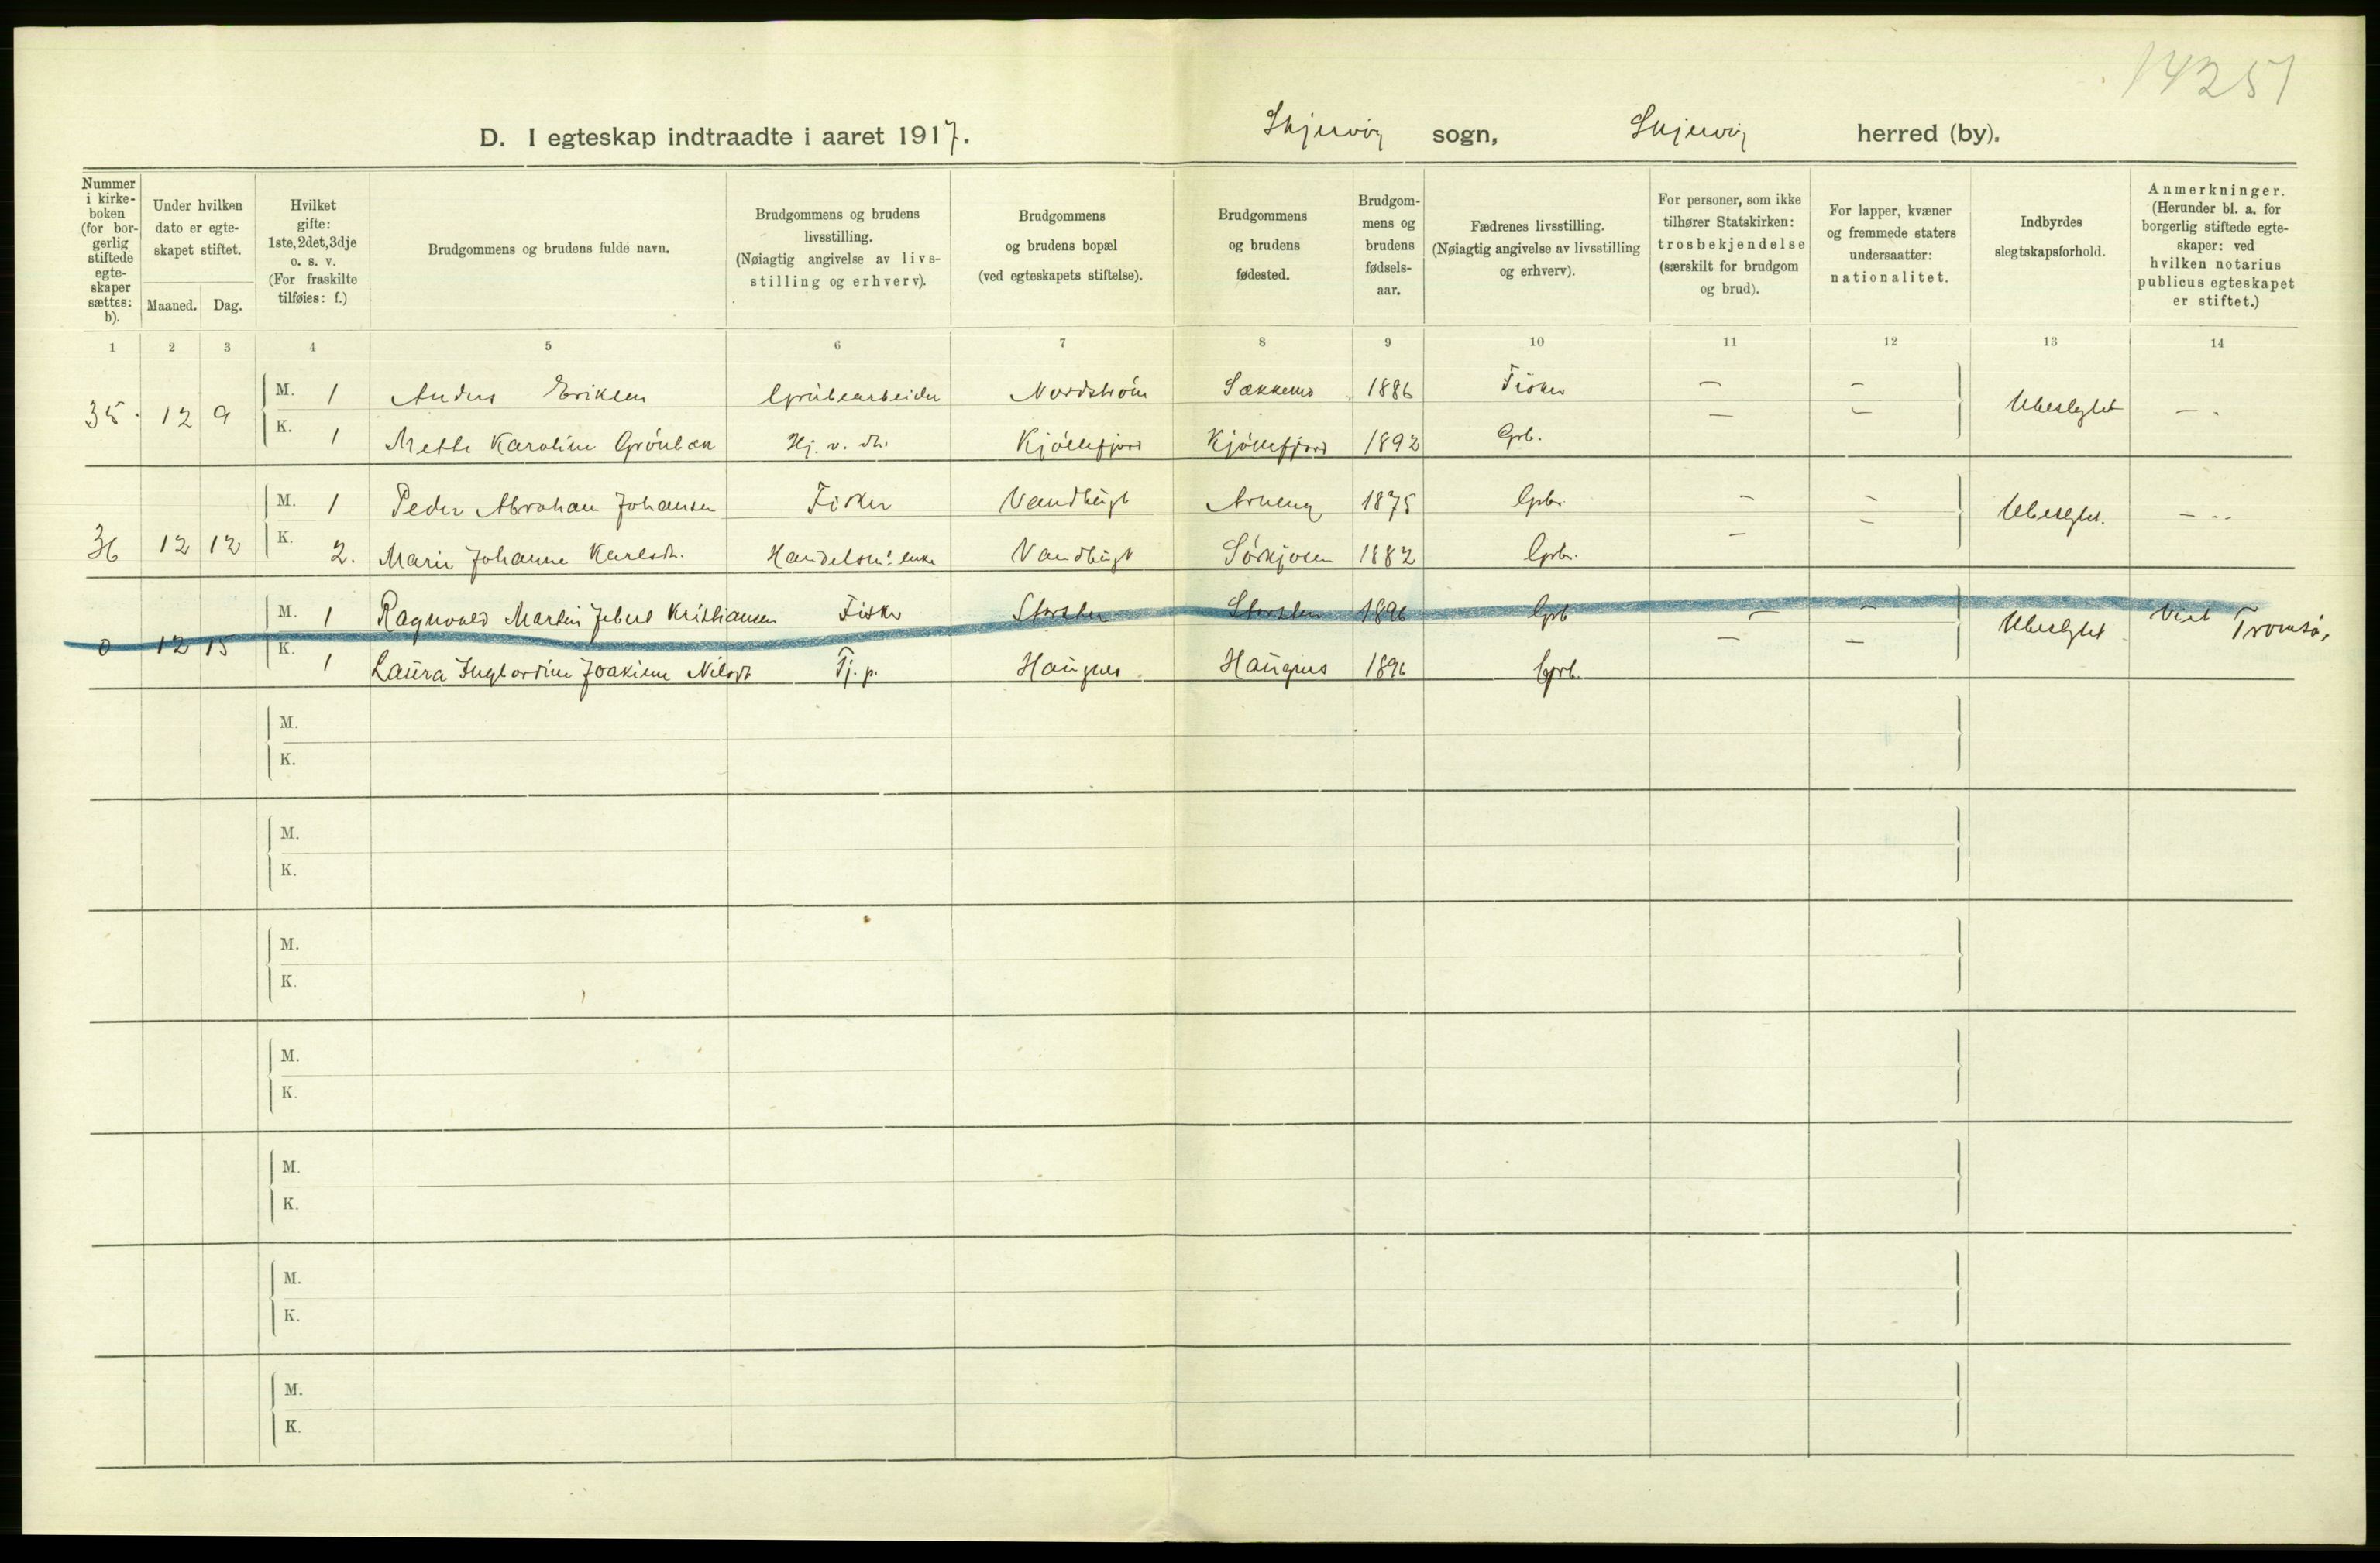 14251
D. I egteskap indtraadte i aaret 1917. Skjervøy sogn, Skjervøy herred (by).
Nummer i kirke-boken (for bor-gerlig stiftede egte-skaper sættes: b).
Under hvilken dato er egte-skapet stiftet.
Maaned. Dag.
Hvilket gifte: 1ste, 2det, 3dje o. s. v. (For fraskilte tilføies: f.)
Brudgommens og brudens fulde navn.
Brudgommens og brudens livsstilling. (Nøiagtig angivelse av livs-stilling og erhverv).
Brudgommens og brudens bopæl (ved egteskapets stiftelse).
Brudgommens og brudens fødested.
Brudgom-mens og brudens fødsels-aar.
Fædrenes livsstilling. (Nøiagtig angivelse av livsstilling og erhverv).
For personer, som ikke tilhører Statskirken: trosbekjendelse (særskilt for brudgom og brud).
For lapper, kvæner og fremmede staters undersaatter: nationalitet.
Indbyrdes slegtskapsforhold.
Anmerkninger. (Herunder bl. a. for borgerlig stiftede egte-skaper: ved hvilken notarius publicus egteskapet er stiftet.)
1 2 3 4 5 6 7 8 9 10 11 12 13 14
35. 12 9
M. 1 Anders Eriksen Grubearbeider Nordstrøm 1886 Fisker — — Ubeslegtet —.
K. 1 Mette Karoline Grønbæk Hj. v. Kjøllefjord Kjøllefjord 1892 Grb. — —
36 12 12
M. 1 Peder Abraham Johansen Fisker Vandbugt Arnøy 1875 Grbr. — — Ubeslegtet. —
K. 2. Marie Johanne Karlsdt. Handelsm: enke Vandbugt Sørkjosen 1882 Gbr. — —
0 12 15
M. 1 Ragnvald Martin Kristiansen Fisker Storsten Storsten 1896 Grb — — Ubeslegtet Viet Tromsø.
K. 1 Laura Ingbordine Joakime Nilsdt Tj. p. Haugnes Haugnes 1896 Grb. — —
M.
K.
M.
K.
M.
K.
M.
K.
M.
K.
M.
K.
M.
K.